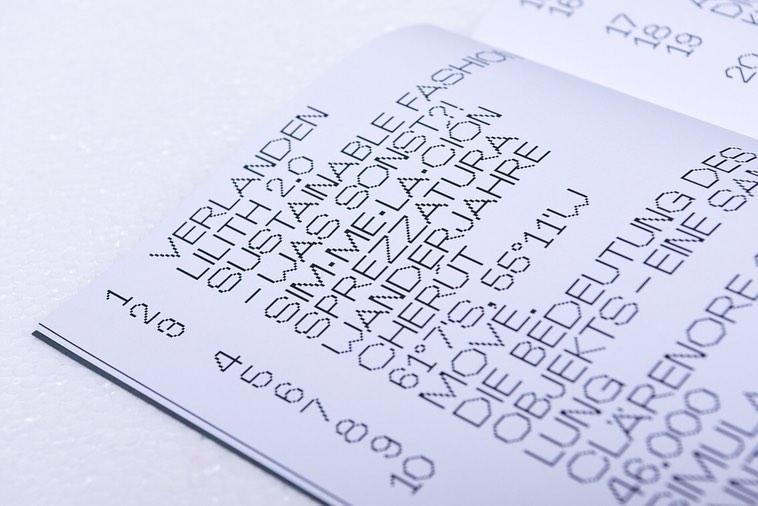 1 VERLANDEN
2 LILITH 2.0
3 SUSTAINABLE FASHION
– WAS SONST?!
4 SIM.ME.LA.CION
5 SPREZZATURA
6 WANDERJAHRE
7 CHERUT
8 61°7'S, 55°11'W
9 MOVE.
10 DIE BEDEUTUNG DES
OBJEKTS – EINE
LUNG
CLÄRENORE
46.000
16
17
18
19
20